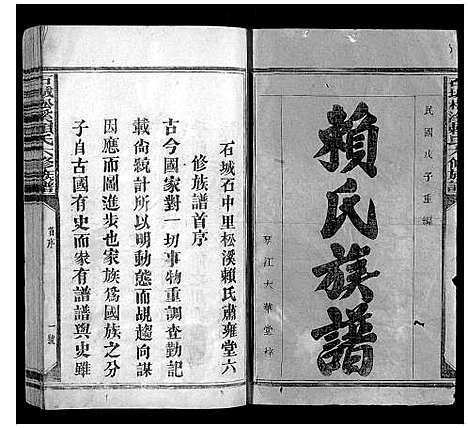 民國戊子重編
賴氏族譜
琴江大華堂梓
石城石中里松溪賴氏肅雍堂六
修族譜首序
古今國家對一切事物重調查勤記
載尙統計所以明動態而覘趨向謀
因應而圖進步也家族爲國族之分
子自古國有史而家有譜譜與史雖
石城松溪賴氏六修族譜
首序
一號